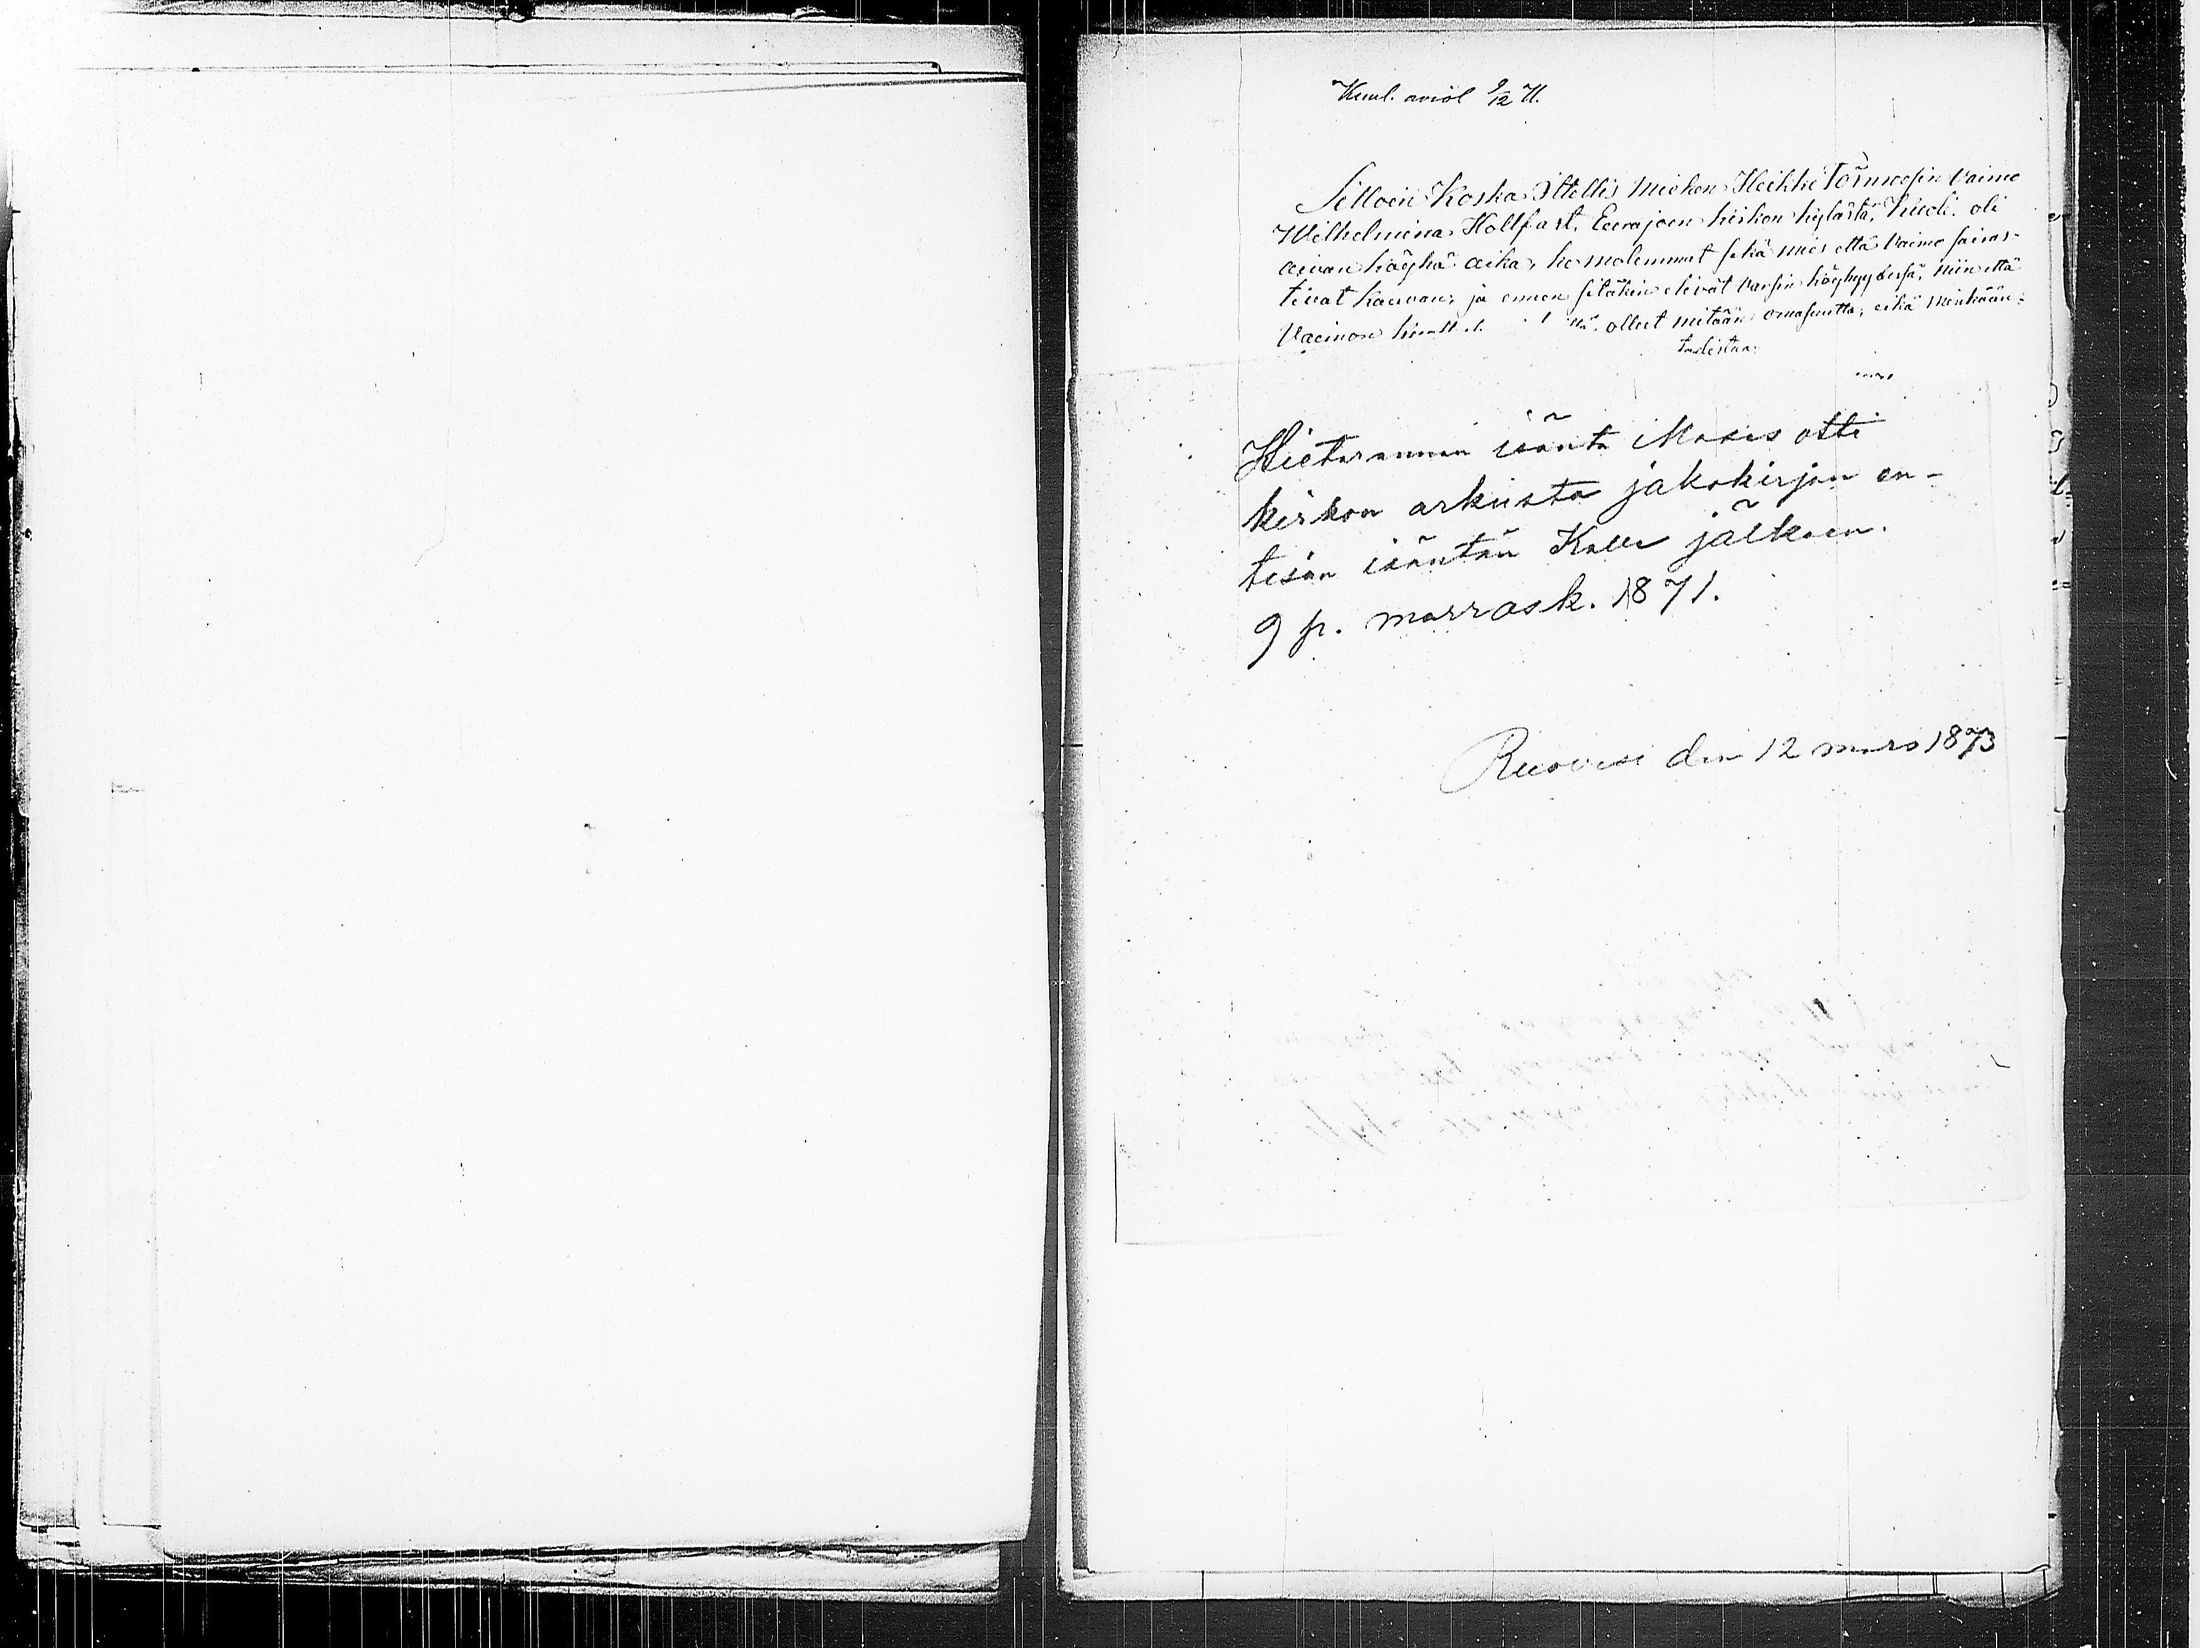 Kuul. aviol 9/12 71.
Silloin Koska Itellis Miehen Heikki Törnroosin Vaimo
Wilhelmina Hollfast, Eerajoen kirkon kylästä, kuoli, oli
aivan köyhä aika, he molemmat sekä mies että Vaimo sairas-
tivat kauvan, ja ennen sitäkin elivät varsin köyhyydessä, niin että
Vaimon ollut mitään omasuutta, eikä Minkään-
todistaa:
Hietarannan isäntä Moses otti
kirkon arkusta jakokirjan en-
tisän isäntän Kalle jälkeen.
9 p. marrask. 1871.
Ruovesi den 12 mars 1873